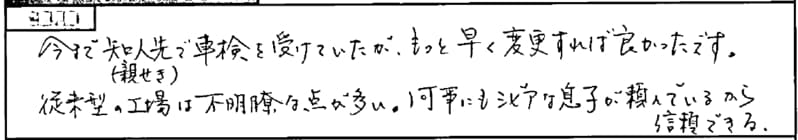 今まで知人先で車検を受けていたが、もっと早く変更すれば良かったです。
(親せき)
従来型の工場は不明瞭な点が多い。何事にもシビアな息子が頼んでいるから
信頼できる。